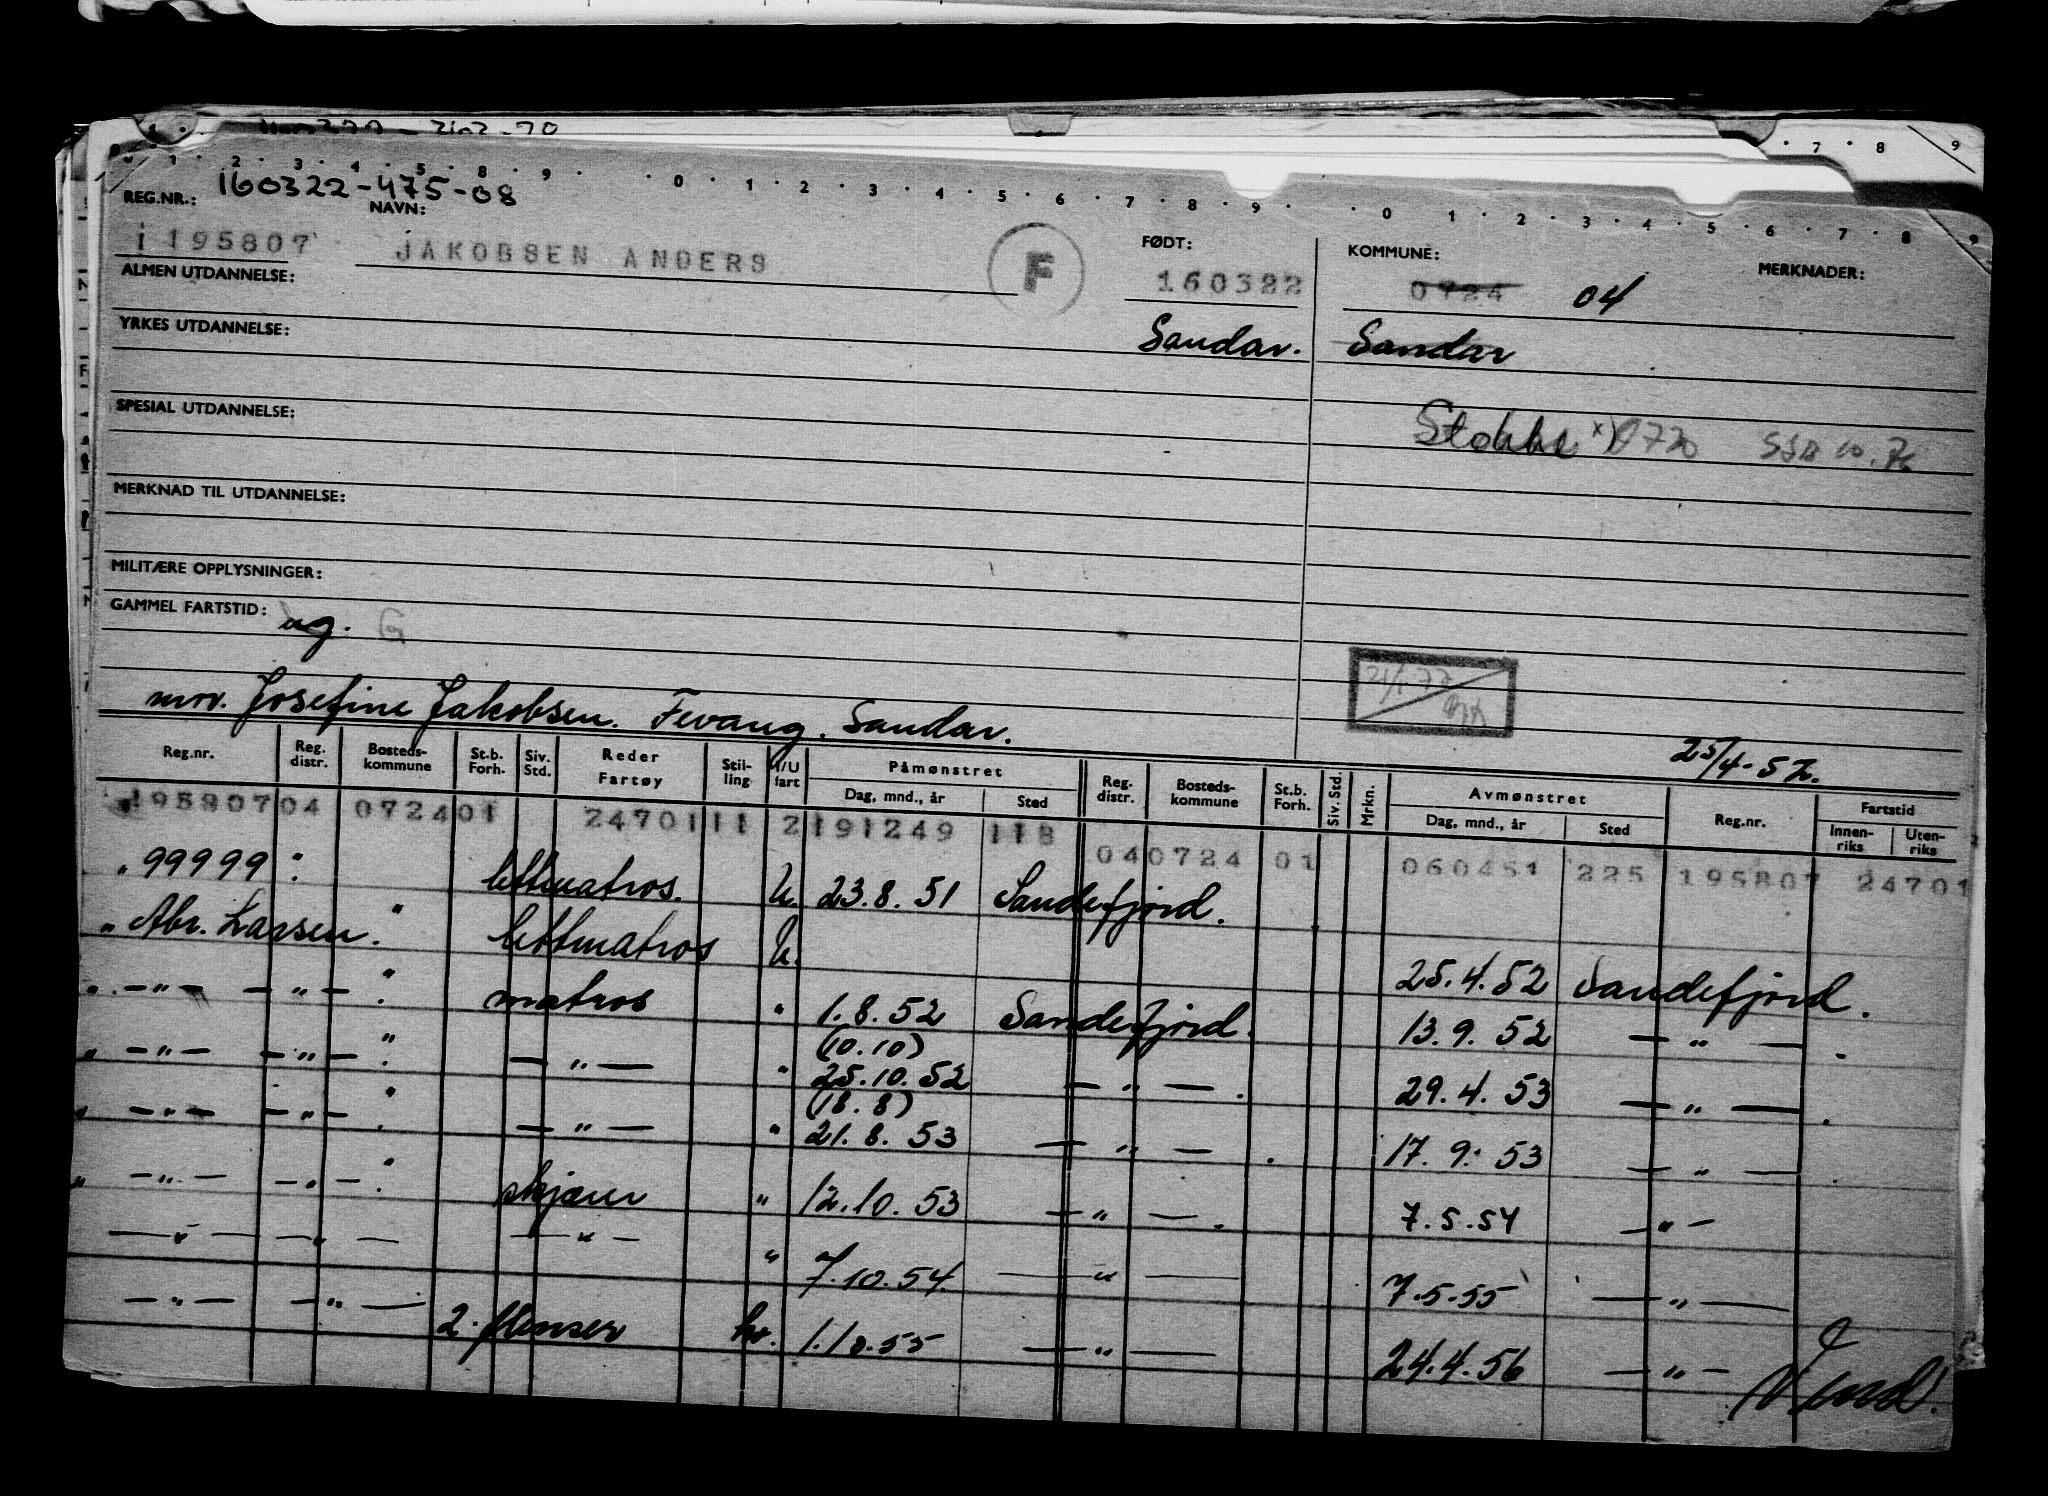 0 · 1 · 2 · 3 · 4 · 5 · 8 · 9 · 0 · 1 · 2 · 3 · 4 · 5 · 6 · 7 · 8 · 9 · 0 · 1 · 2 · 3 · 4 · 5 · 6 · 7 · 8 · 9
REG.NR.: 160322-475-08 NAVN: FØDT: KOMMUNE: MERKNADER:
i 195807 JAKOBSEN ANDERS F 160322 0724 04
ALMEN UTDANNELSE:
YRKES UTDANNELSE: Sandar. Sandar
SPESIAL UTDANNELSE: Stokke x) 0720
MERKNAD TIL UTDANNELSE:
MILITÆRE OPPLYSNINGER:
GAMMEL FARTSTID: ug. G
mor. Josefine Jakobsen. Fevang. Sandar. 25/4-57.
Reg.nr. Reg. distr. Bosteds-kommune St.b. Forh. Siv. Std. Reder Fartøy Stil-ling I/U fart Påmønstret Dag, mnd., år Sted Reg. distr. Bosteds-kommune St.b. Forh. Siv. Std. Mrkn. Avmønstret Dag, mnd., år Sted Reg.nr. Fartstid Innen-riks Uten-riks
195807 04 0724 01 2470111 2 191249 118 04 0724 01 060451 225 195807 24701
" 99999 : lettmatros. U. 23.8.51 Sandefjord.
" Abr. Larsen. " lettmatros U. 25.4.52 Sandefjord.
" - " - - " - " matros " 1.8.52 Sandefjord. 13.9.52 - " - .
(10.10)
" - " - - " - " - " - " 25.10.52 - " - . 29.4.53 - " - .
(18.8)
" - " - - " - " - " - " 21.8.53 - " - . 17.9.53 - " - .
" - " - - " - " skjærer " 12.10.53 - " - . 7.5.54 - " -
- " - - " - - " - " 7.10.54. - " - 7.5.55 - " -
- " - - " - 2. flenser hv. 1.10.55 - " - 24.4.56 - " -
Vend!